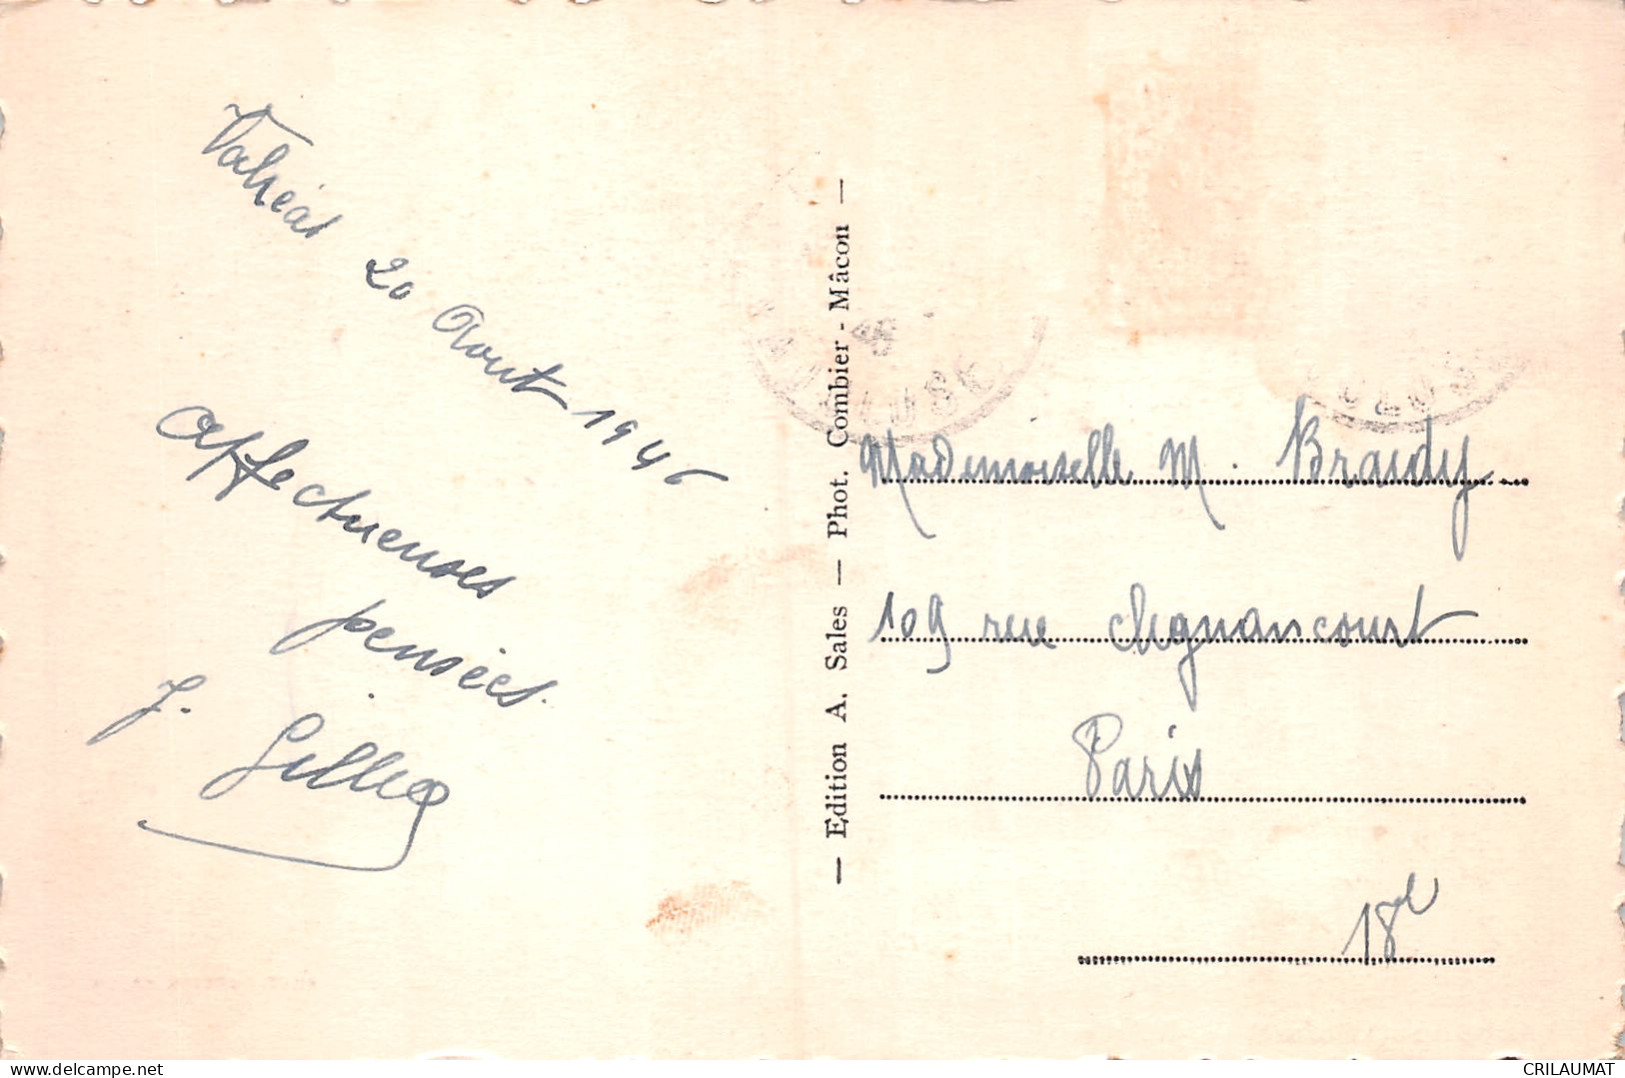 Valréas 20 Aout 1946
affectueuses
pensées.
J.
— Edition A. Sales — Phot. Combier - Mâcon —
VAUCLUSE
Mademoiselle M. Braidy
109 rue Clignancourt
Paris
18e
delcampe.net
CRILAUMAT